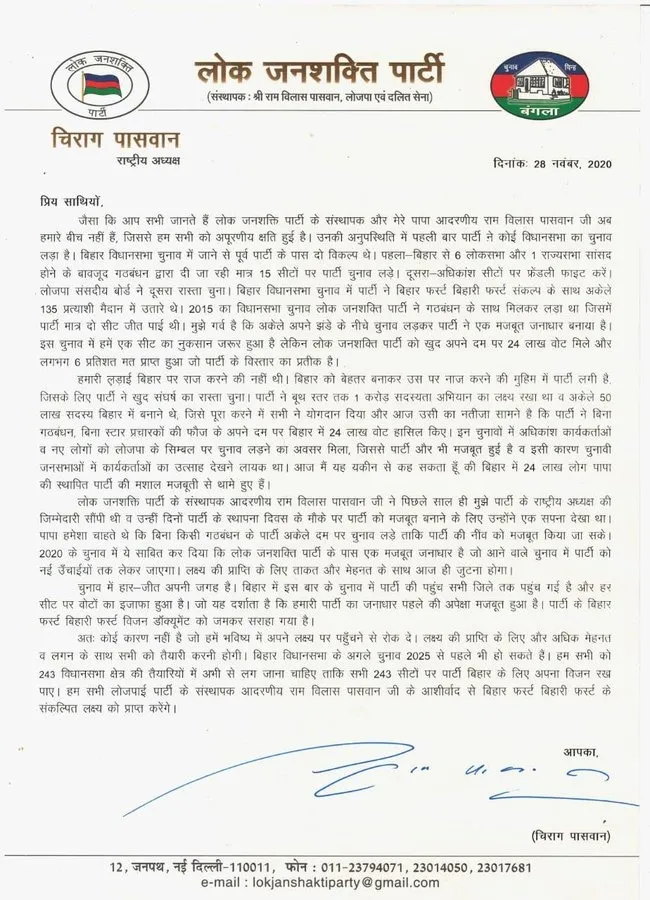 लोक जनशक्ति
पार्टी
लोक जनशक्ति पार्टी
(संस्थापक : श्री राम विलास पासवान, लोजपा एवं दलित सेना)
चुनाव चिन्ह
बंगला
चिराग पासवान
राष्ट्रीय अध्यक्ष
दिनांकः 28 नवंबर, 2020
प्रिय साथियों,
जैसा कि आप सभी जानते हैं लोक जनशक्ति पार्टी के संस्थापक और मेरे पापा आदरणीय राम विलास पासवान जी अब
हमारे बीच नहीं हैं, जिससे हम सभी को अपूरणीय क्षति हुई है। उनकी अनुपस्थिति में पहली बार पार्टी ने कोई विधानसभा का चुनाव
लड़ा है। बिहार विधानसभा चुनाव में जाने से पूर्व पार्टी के पास दो विकल्प थे। पहला–बिहार से 6 लोकसभा और 1 राज्यसभा सांसद
होने के बावजूद गठबंधन द्वारा दी जा रही मात्र 15 सीटों पर पार्टी चुनाव लड़े। दूसरा–अधिकांश सीटों पर फ्रेंडली फाइट करें।
लोजपा संसदीय बोर्ड ने दूसरा रास्ता चुना। बिहार विधानसभा चुनाव में पार्टी ने बिहार फर्स्ट बिहारी फर्स्ट संकल्प के साथ अकेले
135 प्रत्याशी मैदान में उतारे थे। 2015 का विधानसभा चुनाव लोक जनशक्ति पार्टी ने गठबंधन के साथ मिलकर लड़ा था जिसमें
पार्टी मात्र दो सीट जीत पाई थी। मुझे गर्व है कि अकेले अपने झंडे के नीचे चुनाव लड़कर पार्टी ने एक मजबूत जनाधार बनाया है।
इस चुनाव में हमें एक सीट का नुकसान जरूर हुआ है लेकिन लोक जनशक्ति पार्टी को खुद अपने दम पर 24 लाख वोट मिले और
लगभग 6 प्रतिशत मत प्राप्त हुआ जो पार्टी के विस्तार का प्रतीक है।
हमारी लड़ाई बिहार पर राज करने की नहीं थी। बिहार को बेहतर बनाकर उस पर नाज करने की मुहिम में पार्टी लगी है,
जिसके लिए पार्टी ने खुद संघर्ष का रास्ता चुना। पार्टी ने बूथ स्तर तक 1 करोड़ सदस्यता अभियान का लक्ष्य रखा था व अकेले 50
लाख सदस्य बिहार में बनाने थे, जिसे पूरा करने में सभी ने योगदान दिया और आज उसी का नतीजा सामने है कि पार्टी ने बिना
गठबंधन, बिना स्टार प्रचारकों की फौज के अपने दम पर बिहार में 24 लाख वोट हासिल किए। इन चुनावों में अधिकांश कार्यकर्ताओं
व नए लोगों को लोजपा के सिम्बल पर चुनाव लड़ने का अवसर मिला, जिससे पार्टी और भी मजबूत हुई है व इसी कारण चुनावी
जनसभाओं में कार्यकर्ताओं का उत्साह देखने लायक था। आज मैं यह यकीन से कह सकता हूँ की बिहार में 24 लाख लोग पापा
की स्थापित पार्टी की मशाल मजबूती से थामे हुए हैं।
लोक जनशक्ति पार्टी के संस्थापक आदरणीय राम विलास पासवान जी ने पिछले साल ही मुझे पार्टी के राष्ट्रीय अध्यक्ष की
जिम्मेदारी सौंपी थी व उन्हीं दिनों पार्टी के स्थापना दिवस के मौके पर पार्टी को मजबूत बनाने के लिए उन्होंने एक सपना देखा था।
पापा हमेशा चाहते थे कि बिना किसी गठबंधन के पार्टी अकेले दम पर चुनाव लड़े ताकि पार्टी की नींव को मजबूत किया जा सके।
2020 के चुनाव में ये साबित कर दिया कि लोक जनशक्ति पार्टी के पास एक मजबूत जनाधार है जो आने वाले चुनाव में पार्टी को
नई उँचाईयों तक लेकर जाएगा। लक्ष्य की प्राप्ति के लिए ताकत और मेहनत के साथ आज ही जुटना होगा।
चुनाव में हार–जीत अपनी जगह है। बिहार में इस बार के चुनाव में पार्टी की पहुंच सभी जिले तक पहुंच गई है और हर
सीट पर वोटों का इजाफा हुआ है। जो यह दर्शाता है कि हमारी पार्टी का जनाधार पहले की अपेक्षा मजबूत हुआ है। पार्टी के बिहार
फर्स्ट बिहारी फर्स्ट विजन डॉक्यूमेंट को जमकर सराहा गया है।
अतः कोई कारण नहीं है जो हमें भविष्य में अपने लक्ष्य पर पहुँचने से रोक दे। लक्ष्य की प्राप्ति के लिए और अधिक मेहनत
व लगन के साथ सभी को तैयारी करनी होगी। बिहार विधानसभा के अगले चुनाव 2025 से पहले भी हो सकते हैं। हम सभी को
243 विधानसभा क्षेत्र की तैयारियों में अभी से लग जाना चाहिए ताकि सभी 243 सीटों पर पार्टी बिहार के लिए अपना विजन रख
पाए। हम सभी लोजपाई पार्टी के संस्थापक आदरणीय राम विलास पासवान जी के आशीर्वाद से बिहार फर्स्ट बिहारी फर्स्ट के
संकल्पित लक्ष्य को प्राप्त करेंगे।
आपका,
(चिराग पासवान)
12, जनपथ, नई दिल्ली–110011, फोन : 011-23794071, 23014050, 23017681
e-mail : lokjanshaktiparty@gmail.com